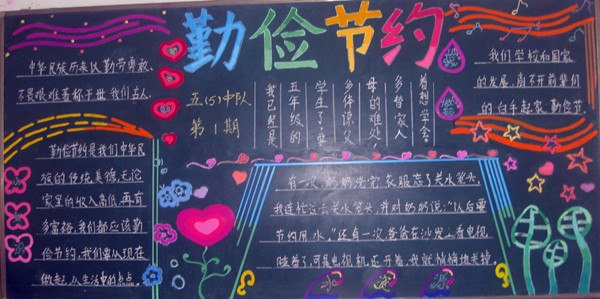 勤俭节约
中华民族历来以勤劳勇敢、
不畏艰难著称于世,我们古人
五(5)中队
第1期
着想,学会
多替家人
母的难处,
多体谅父
学生了,要
五年级的
我已经是
我们学校和国家
的发展,离不开前辈们
的白手起家、勤俭节
勤俭节约是我们中华民
族的传统美德,无论
家里的收入高低,再有
多富裕,我们都应该勤
俭节约,我们要从现在
做起,从生活中的点点
有一次,奶奶洗完衣服忘了关水笼头,
我连忙去关水笼头,并对奶奶说:“以后要
节约用水。”还有一次,爸爸在沙发上看电视
睡着了,可是电视机还开着,我就悄悄地走掉